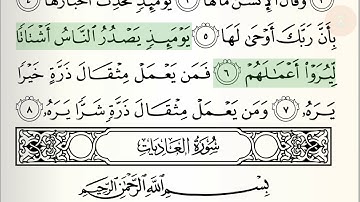 وَقَالَ ٱلْإِنسَٰنُ مَا لَهَا ٣ يَوْمَئِذٍ تُحَدِّثُ أَخْبَارَهَا ٤
بِأَنَّ رَبَّكَ أَوْحَىٰ لَهَا ٥ يَوْمَئِذٍ يَصْدُرُ ٱلنَّاسُ أَشْتَاتًا
لِّيُرَوْا۟ أَعْمَٰلَهُمْ ٦ فَمَن يَعْمَلْ مِثْقَالَ ذَرَّةٍ خَيْرًا
يَرَهُۥ ٧ وَمَن يَعْمَلْ مِثْقَالَ ذَرَّةٍ شَرًّا يَرَهُۥ ٨
سُورَةُ الْعَادِيَاتِ
بِسْمِ ٱللَّهِ ٱلرَّحْمَٰنِ ٱلرَّحِيمِ